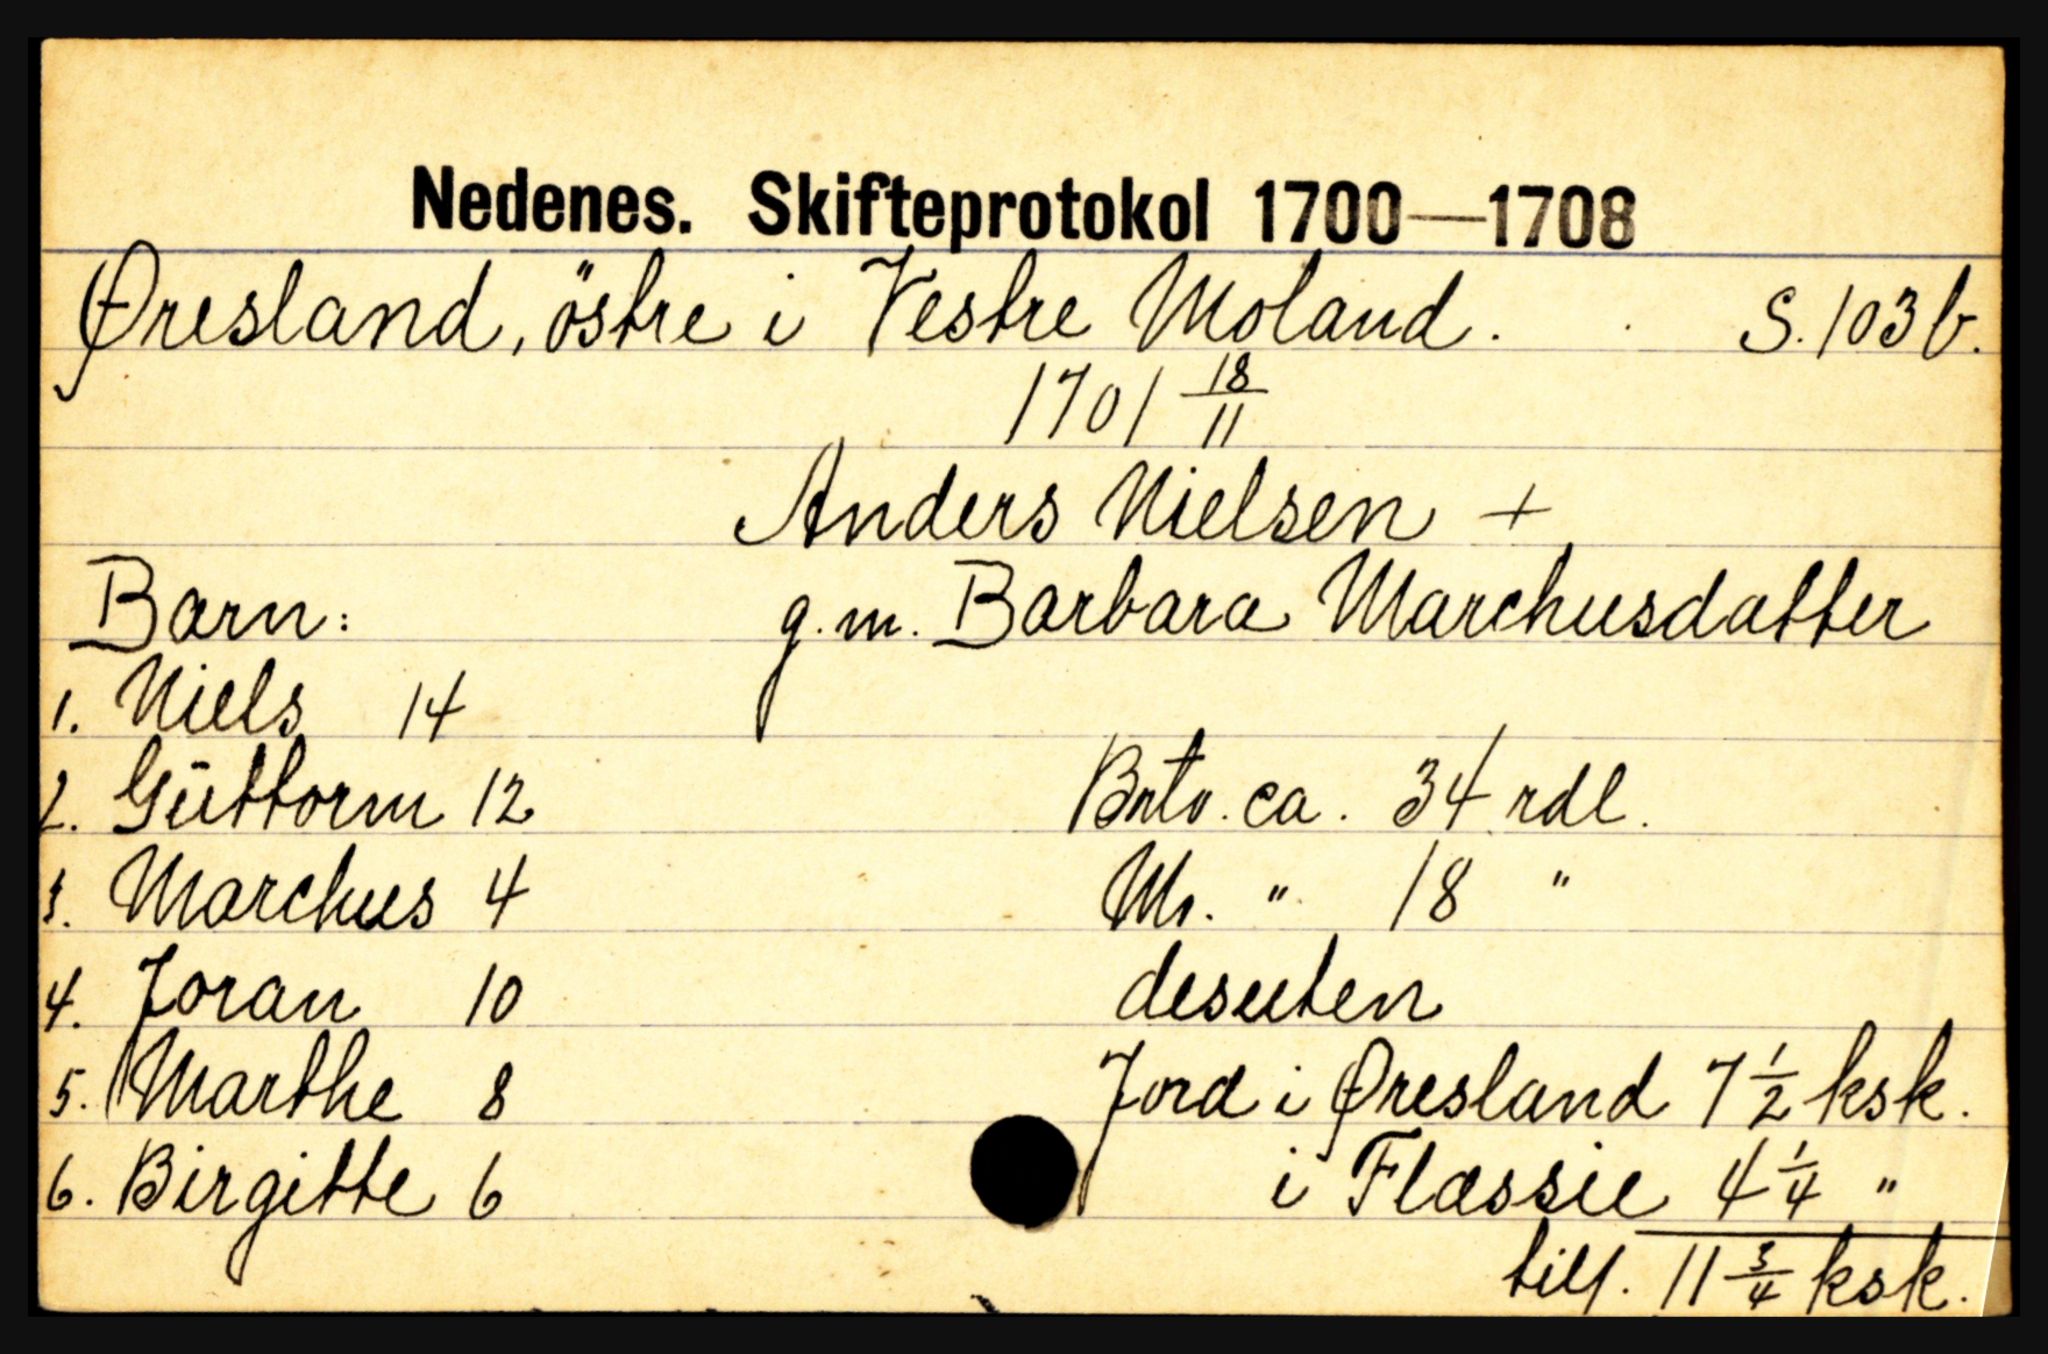 Nedenes. Skifteprotokol 1700—1708
Øresland, östre i Vestre Moland. S. 103 b.
1701 18/11
Anders Nielsen +
Barn: g.m. Barbara Marchusdatter
1. Niels 14
2. Gūttorm 12 Brto. ca. 34 rdl.
3. Marchus 4 Nto. " 18 "
4. Joran 10 desuten
5. Marthe 8 Jord i Øresland 7 1/2 ksk.
6. Birgitte 6 i Flassie 4 1/4 "
till. 11 3/4 ksk.